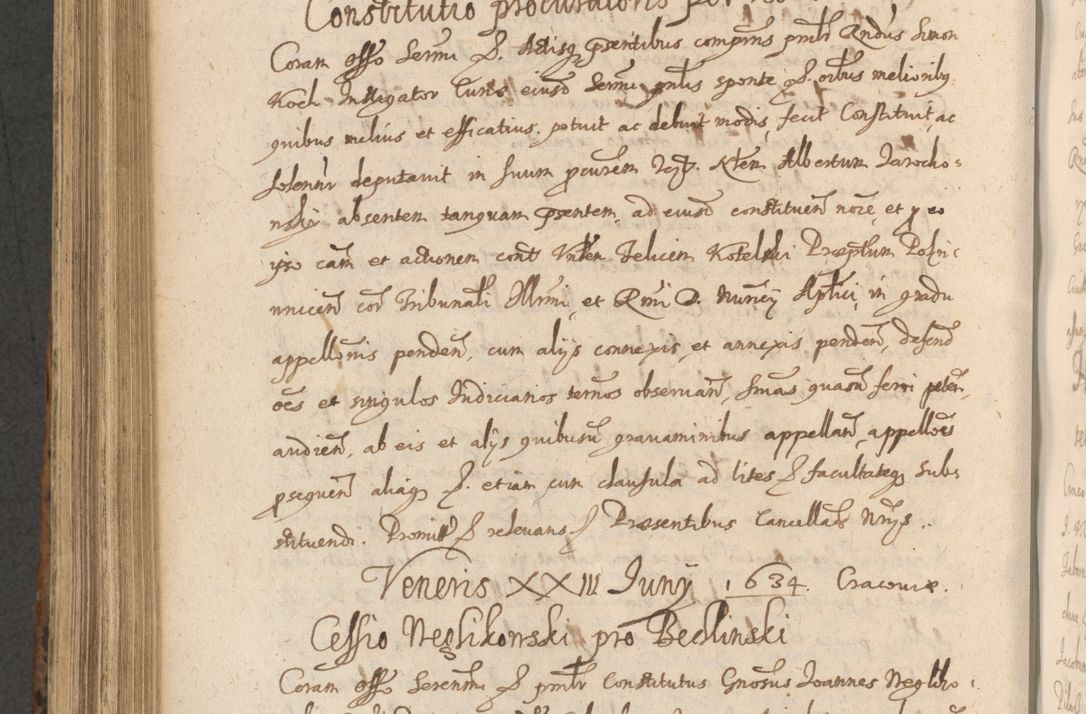 Constitutio procuratoris
Coram offo Sermi S. Actisq psentibus comprns pntr Andus Simon
Koch Instigator Curis eiusd Sermi pnlis sponte S. oibus melioribq
quibus melius et efficatius potuit ac debuit modis fecit Constituit ac
solennr deputavit in suum pcurem Albertum Jarocho-
nski absentem tanquam psentem, ad eiusd constituen noie, et p eo
ipso cam et actionem cont Felicem Kotelski Praeptum Posn:
cor Tribunali Illrmi, et Rmi D. Nuncij Aplici, in gradu
appellonis penden, cum alijs connexis, et annexis penden, defend
oes et singulos Iudiciarios ternos observan, snias quasn ferri peten
audien, ab eis et alijs quibusn gravaminibus appellan, appelloes
psequen aliaq S. etiam cum clausula ad lites S facultateq subs
stituendi. Promitt S relevans S Praesentibus Cancellae Nrijs..
Veneris XXIII Iunij 1634. Cracoviae.
Cessio Neglikowski pro Bedlinski
Coram offo Serenmi S pntr Constitutus Gnosus Ioannes Negliko: